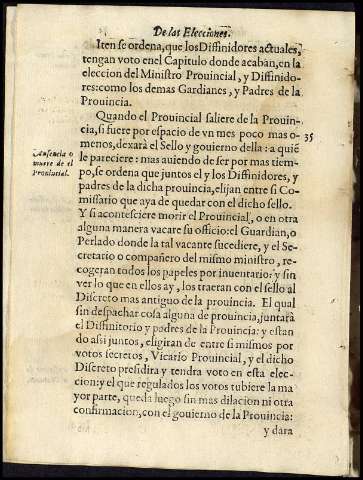 De las Elecciones.
Iten se ordena, que los Diffinidores actuales,
tengan voto enel Capitulo donde acabãn, en la
eleccion del Ministro Prouincial, y Diffinido-
res: como los demas Gardianes, y Padres de la
Prouincia.
Quando el Prouincial saliere de la Prouin-
cia, si fuere por espacio de vn mes poco mas o-
35
menos, dexarà el Sello y gouierno della: a quiẽ
Ausencia o
muere de el
Prouincial.
le pareciere: mas auiendo de ser por mas tiem-
po, se ordena que juntos el y los Diffinidores, y
padres de la dicha prouincia, elijan entre si Co-
missario que aya de quedar con el dicho sello.
Y si acontesciere morir el Prouincial, o en otra
alguna manera vacare su officio: el Guardian, o
Perlado donde la tal vacante sucediere, y el Se-
cretario o compañero del mismo ministro, re-
cogeran todos los papeles por inuentario: y sin
ver lo que en ellos ay, los traeran con el sello al
Discreto mas antiguo de la prouincia. El qual
sin despachar cosa alguna de prouincia, juntarà
el Diffinitorio y padres de la Prouincia: y estan
do assi juntos, eligiran de entre si mismos por
votos secretos, Vicario Prouincial, y el dicho
Discreto presidira y tendra voto en esta elec-
cion: y el que regulados los votos tubiere la ma
yor parte, queda luego sin mas dilacion ni otra
confirmacion, con el gouierno de la Prouincia:
y dara